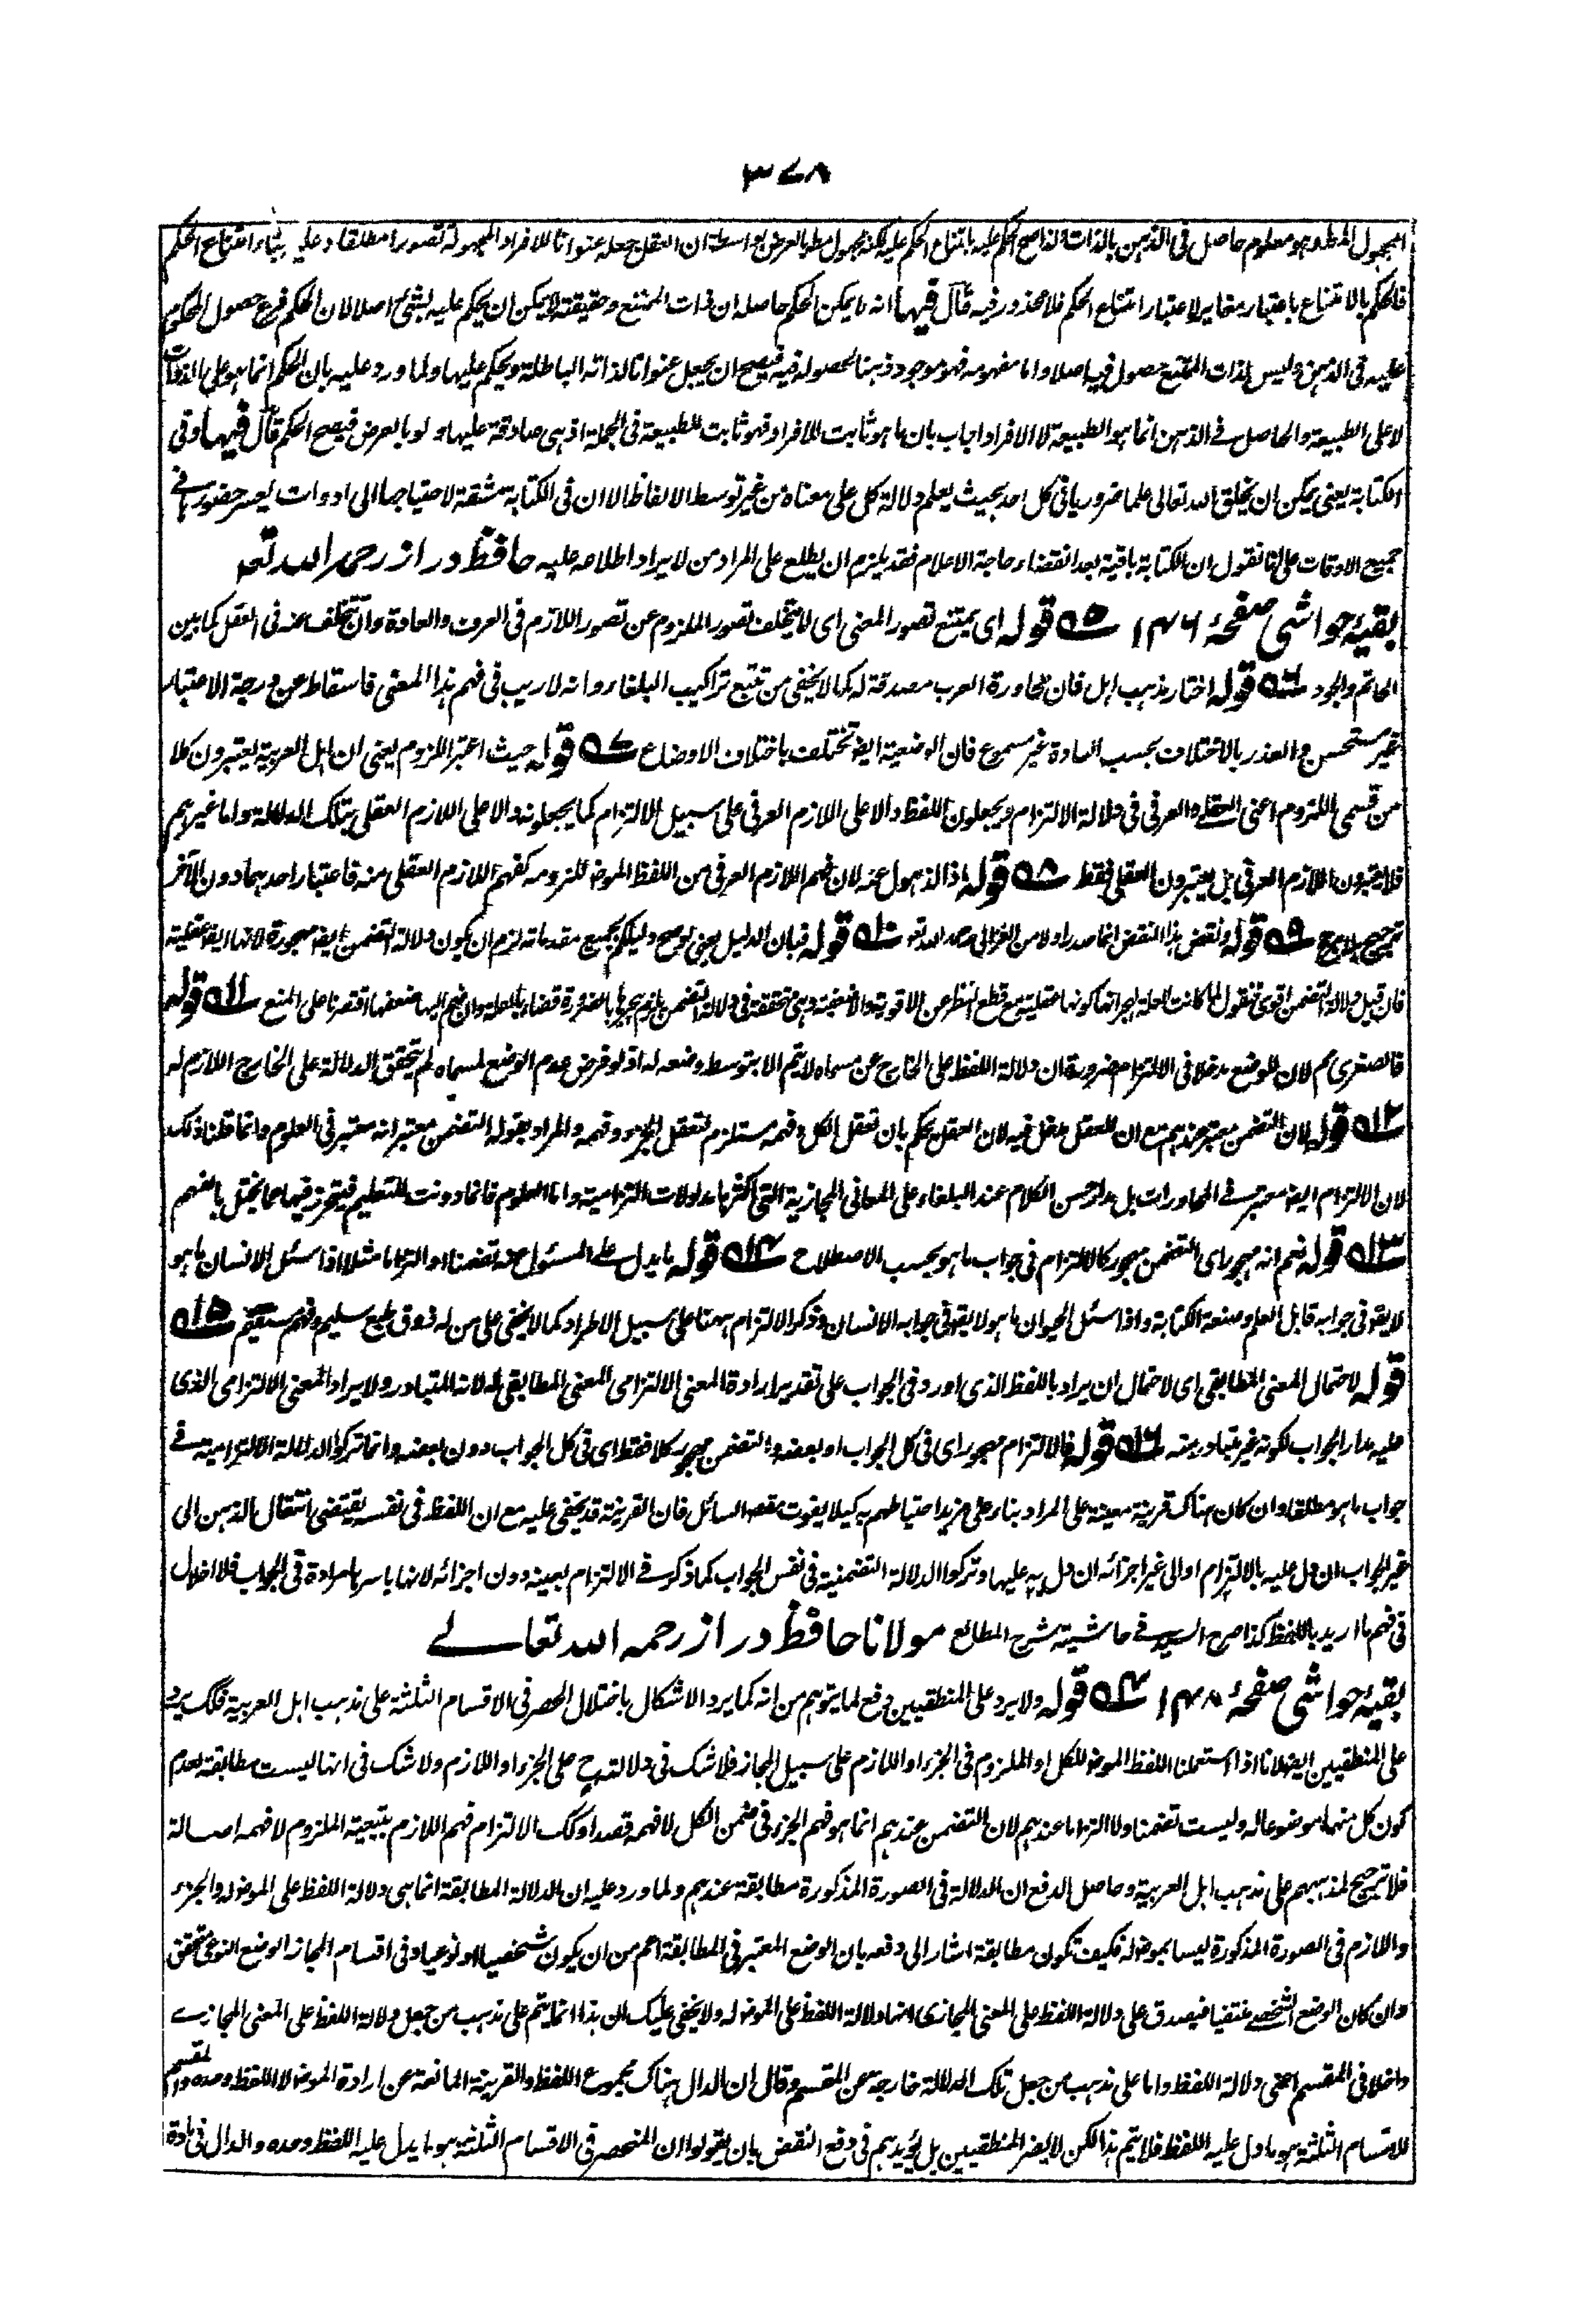 ٣٧٨
المجهول المطلق وهو معلوم حاصل فى الذهن بالذات فلذا صح الحكم عليه بامتناع الحكم عليه لكنه مجهول مط بالعرض بواسطة ان العقل جعله عنوانا للافراد المجهولة تصورا مطلقا وعليه بناء امتناع الحكم
فالحكم بالامتناع باعتبار مغاير لاعتبار امتناع الحكم فلا محذور فيه قال فيها انه لا يمكن الحكم حاصله ان ذات الممتنع وحقيقته لا يمكن ان يحكم عليه بشئ اصلا لان الحكم فرع حصول المحكوم
عليه فى الذهن وليس لذات الممتنع حصول فيه اصلا واما مفهومه فهو موجود ذهنا لحصوله فيه فيصح ان يجعل عنوانا لذاته الباطلة ويحكم عليها ولما ورد عليه بان الحكم انما هو على الذات
لا على الطبيعة والحاصل فے الذهن انما هو الطبيعة لا الافراد اجاب بان ما هو ثابت للافراد فهو ثابت للطبيعة فى الجملة اذ هى صادقة عليها ولو بالعرض فيصح الحكم قال فيها وفى
الكتابة يعنى يمكن ان يخلق الله تعالى علما ضروريا فى كل احد بحيث يعلم دلالة كل على معناه من غير توسط الالفاظ الا ان فى الكتابة مشقة لاحتياجها الى ادوات يعسر حضورها فے
جميع الاوقات على انا نقول ان الكتابة باقية بعد انقضاء حاجة الاعلام فقد يلزم ان يطلع على المراد من لا يراد اطلاعه عليه حافظ دراز رحمه الله تعه
بقيۂ حواشى صفحۂ ١٤٦ ۵ قوله اى يمتنع تصور المعنى اى لا يتخلف تصور الملزوم عن تصور اللازم فى العرف والعادة وان تخلف عنه فى العقل كما بين
الحاتم والجود ٦ قوله اختار مذهب اهل فان محاورة العرب مصدقة له كما لا يخفى من تتبع تراكيب البلغاء وانه لا ريب فى فهم هذا المعنى فاسقاطه عن درجة الاعتبار
غير مستحسن والعذر بالاختلاف بحسب العادة غير مسموع فان الوضعية ايضا تختلف باختلاف الاوضاع ٧ قوله حيث اعتبر اللزوم يعنى ان اهل العربية يعتبرون كلا
من قسمى اللزوم اعنى العقلے والعرفى فى دلالة الالتزام ويجعلون اللفظ دالا على اللازم العرفى على سبيل الالتزام كما يجعلونه دالا على اللازم العقلى بتلك الدلالة واما غيرهم
فلا يعتبرون اللازم العرفى بل يعتبرون العقلى فقط ٨ قوله اذا لذهول عنه لان فهم اللازم العرفى من اللفظ الموضوع لملزومه كفهم اللازم العقلى منه فاعتبار احدهما دون الآخر
ترجيح بلا مرجح ٩ قوله ونقض هذا النقض انما صدر اولا من الغزالى رحمه الله تعه ١٠ قوله فبان الدليل يعنى لو صح دليلكم بجميع مقدماته لزم ان يكون دلالة التضمن ايضا مهجورة لانها ايضا عقلية
فان قيل دلالة التضمن اقوى فنقول لما كانت العلة لهجرانها كونها عقلية مع قطع النظر عن الاقوية والاضعفية وهى متحققة فى دلالة التضمن يلزم هجرها بالضرورة قضاء للعلة وان ضم اليها ضعفها اقتصرنا على المنع ١١ قوله
فالصغرى مم لان للوضع مدخلا فى الالتزام ضرورة ان دلالة اللفظ على الخارج عن مسماه لا يتم الا بتوسط وضعه له اذ لو فرض عدم الوضع لمسماه لم يتحقق الدلالة على الخارج اللازم له
١٢ قوله لان التضمن معتبر عندهم مع ان للعقل مدخل فيه لان العقل يحكم بان تعقل الكل وفهمه مستلزم لتعقل الجزء وفهمه والمراد بقوله التضمن معتبر انه معتبر فى العلوم وانما قلنا ذلك
لان الالتزام ايضا معتبر فے المحاورات بل مدار حسن الكلام عند البلغاء على المعانى المجازية التى اكثرها مدلولات التزامية واما العلوم فانما دونت للتعليم فيتحرز فيها عما يختل بالفهم
١٣ قوله نعم انه مهجور اى التضمن مهجور كالالتزام فى جواب ما هو بحسب الاصطلاح ١٤ قوله ما يدل على المسئول عنه تضمنا او التزاما مثلا اذا سئل الانسان ما هو
لا يقال فى جوابه قابل العلم وصنعة الكتابة واذا سئل الحيوان ما هو لا يقال فى جوابه الانسان وذكر الالتزام ههنا على سبيل الاطراد كما لا يخفى على من له ذوق طبع سليم وفهم مستقيم ١٥
قوله لاحتمال المعنى المطابقى اى لاحتمال ان يراد باللفظ الذى اورد فى الجواب على تقدير ارادة المعنى الالتزامى المعنى المطابقى له لانه المتبادر ولا يراد المعنى الالتزامى الذى
عليه مدار الجواب لكونه غير متبادر منه ١٦ قوله فالالتزام مهجور اى فى كل الجواب او بعضه والتضمن مهجور كلا فقط اى فى كل الجواب دون بعضه وانما تركوا الدلالة الالتزامية فے
جواب ما هو مطلقا وان كان هناك قرينة معينة على المراد بناء على مزيد احتياطهم به كيلا يفوت مقصد السائل فان القرينة قد يخفى عليه مع ان اللفظ فى نفسه يقتضى انتقال الذهن الى
غير الجواب ان دل عليه بالالتزام او الى غير اجزائه ان دل به عليها وتركوا الدلالة التضمنية فى نفس الجواب كما ذكر فے الالتزام بعينه دون اجزائه لانها باسرها مرادة فى الجواب فلا اخلال
فى فهم ما اريد باللفظ كذا صرح السيد فے حاشية شرح المطالع مولانا حافظ دراز رحمه الله تعالے
بقيۂ حواشى صفحۂ ١٤٨ ٤ قوله ولا يرد على المنطقيين دفع لما يتوهم من انه كما يرد الاشكال باختلال الحصر فى الاقسام الثلثة على مذهب اهل العربية فكك يرد
على المنطقيين ايضا لانا اذا استعملنا اللفظ الموضوع للكل او الملزوم فى الجزء او اللازم على سبيل المجاز فلا شك فى دلالته ح على الجزء او اللازم ولا شك فى انها ليست مطابقة لعدم
كون كل منهما موضوعا له وليست تضمنا ولا التزاما عندهم لان التضمن عندهم انما هو فهم الجزء فى ضمن الكل لا فهمه قصدا وكك الالتزام فهم اللازم بتبعية الملزوم لا فهمه اصالة
فلا ترجيح لمذهبهم على مذهب اهل العربية وحاصل الدفع ان الدلالة فى الصورة المذكورة مطابقة عندهم ولما ورد عليه ان الدلالة المطابقة انما هى دلالة اللفظ على الموضوع له والجزء
واللازم فى الصورة المذكورة ليسا بموضوع له فكيف تكون مطابقة اشار الى دفعه بان الوضع المعتبر فى المطابقة اعم من ان يكون شخصيا او نوعيا وفى اقسام المجاز الوضع النوعى تحقق
وان كان الوضع الشخصے منتفيا فيصدق على دلالة اللفظ على المعنى المجازى انها دلالة اللفظ على الموضوع له ولا يخفى عليك ان هذا انما يتم على مذهب من جعل دلالة اللفظ على المعنى المجازے
داخلا فى المقسم اعنى دلالة اللفظ واما على مذهب من جعل تلك الدلالة خارجة عن المقسم وقال ان الدال هناك مجموع اللفظ والقرينة المانعة عن ارادة الموضوع له لا اللفظ وحده والمقسم
للاقسام الثلثة هو ما دل عليه اللفظ فلا يتم هذا لكن لا يضر المنطقيين بل يؤيدهم فى دفع النقض بان يقولوا ان المنحصر فى الاقسام الثلثة هو ما يدل عليه اللفظ وحده والدال فى مادة